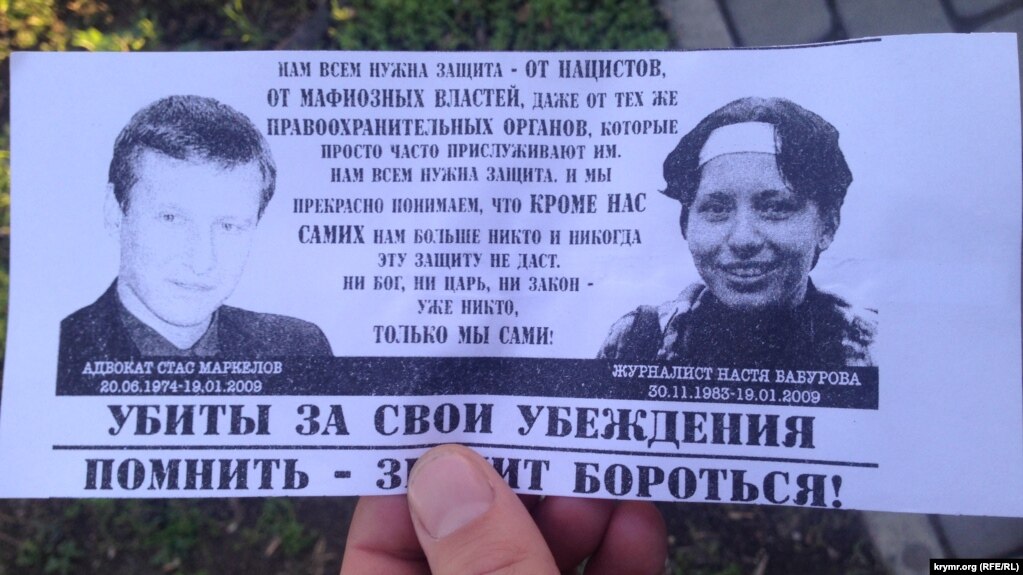 НАМ ВСЕМ НУЖНА ЗАЩИТА - ОТ НАЦИСТОВ,
ОТ МАФИОЗНЫХ ВЛАСТЕЙ, ДАЖЕ ОТ ТЕХ ЖЕ
ПРАВООХРАНИТЕЛЬНЫХ ОРГАНОВ, КОТОРЫЕ
ПРОСТО ЧАСТО ПРИСЛУЖИВАЮТ ИМ.
НАМ ВСЕМ НУЖНА ЗАЩИТА. И МЫ
ПРЕКРАСНО ПОНИМАЕМ, ЧТО КРОМЕ НАС
САМИХ НАМ БОЛЬШЕ НИКТО И НИКОГДА
ЭТУ ЗАЩИТУ НЕ ДАСТ.
НИ БОГ, НИ ЦАРЬ, НИ ЗАКОН -
УЖЕ НИКТО,
ТОЛЬКО МЫ САМИ!
АДВОКАТ СТАС МАРКЕЛОВ
20.06.1974-19.01.2009
ЖУРНАЛИСТ НАСТЯ БАБУРОВА
30.11.1983-19.01.2009
УБИТЫ ЗА СВОИ УБЕЖДЕНИЯ
ПОМНИТЬ - БОРОТЬСЯ!
krymr.org (RFE/RL)